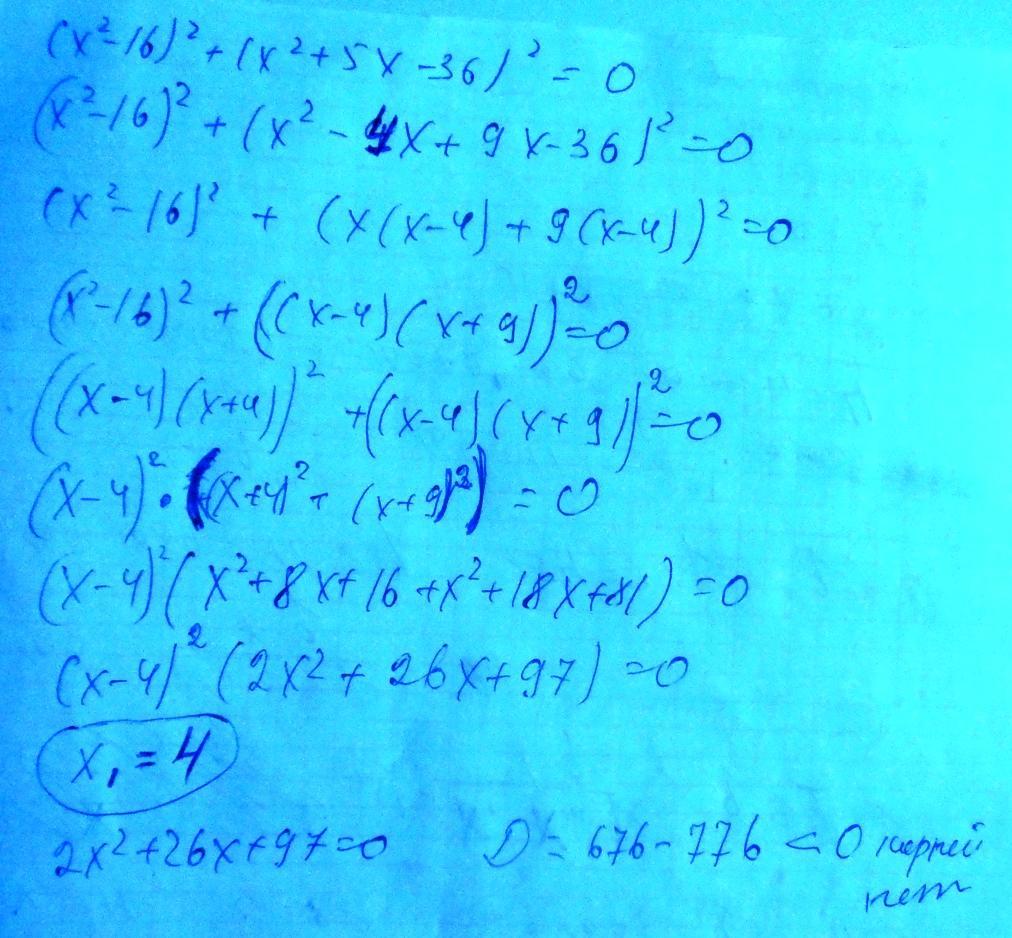 (x²-16)² + (x²+5x-36)² = 0
(x²-16)² + (x²-4x+9x-36)² = 0
(x²-16)² + (x(x-4)+9(x-4))² = 0
(x²-16)² + ((x-4)(x+9))² = 0
((x-4)(x+4))² + ((x-4)(x+9))² = 0
(x-4)² · ((x+4)² + (x+9)²) = 0
(x-4)² (x²+8x+16+x²+18x+81) = 0
(x-4)² (2x²+26x+97) = 0
x₁ = 4
2x²+26x+97=0 D = 676-776 < 0 корней
нет